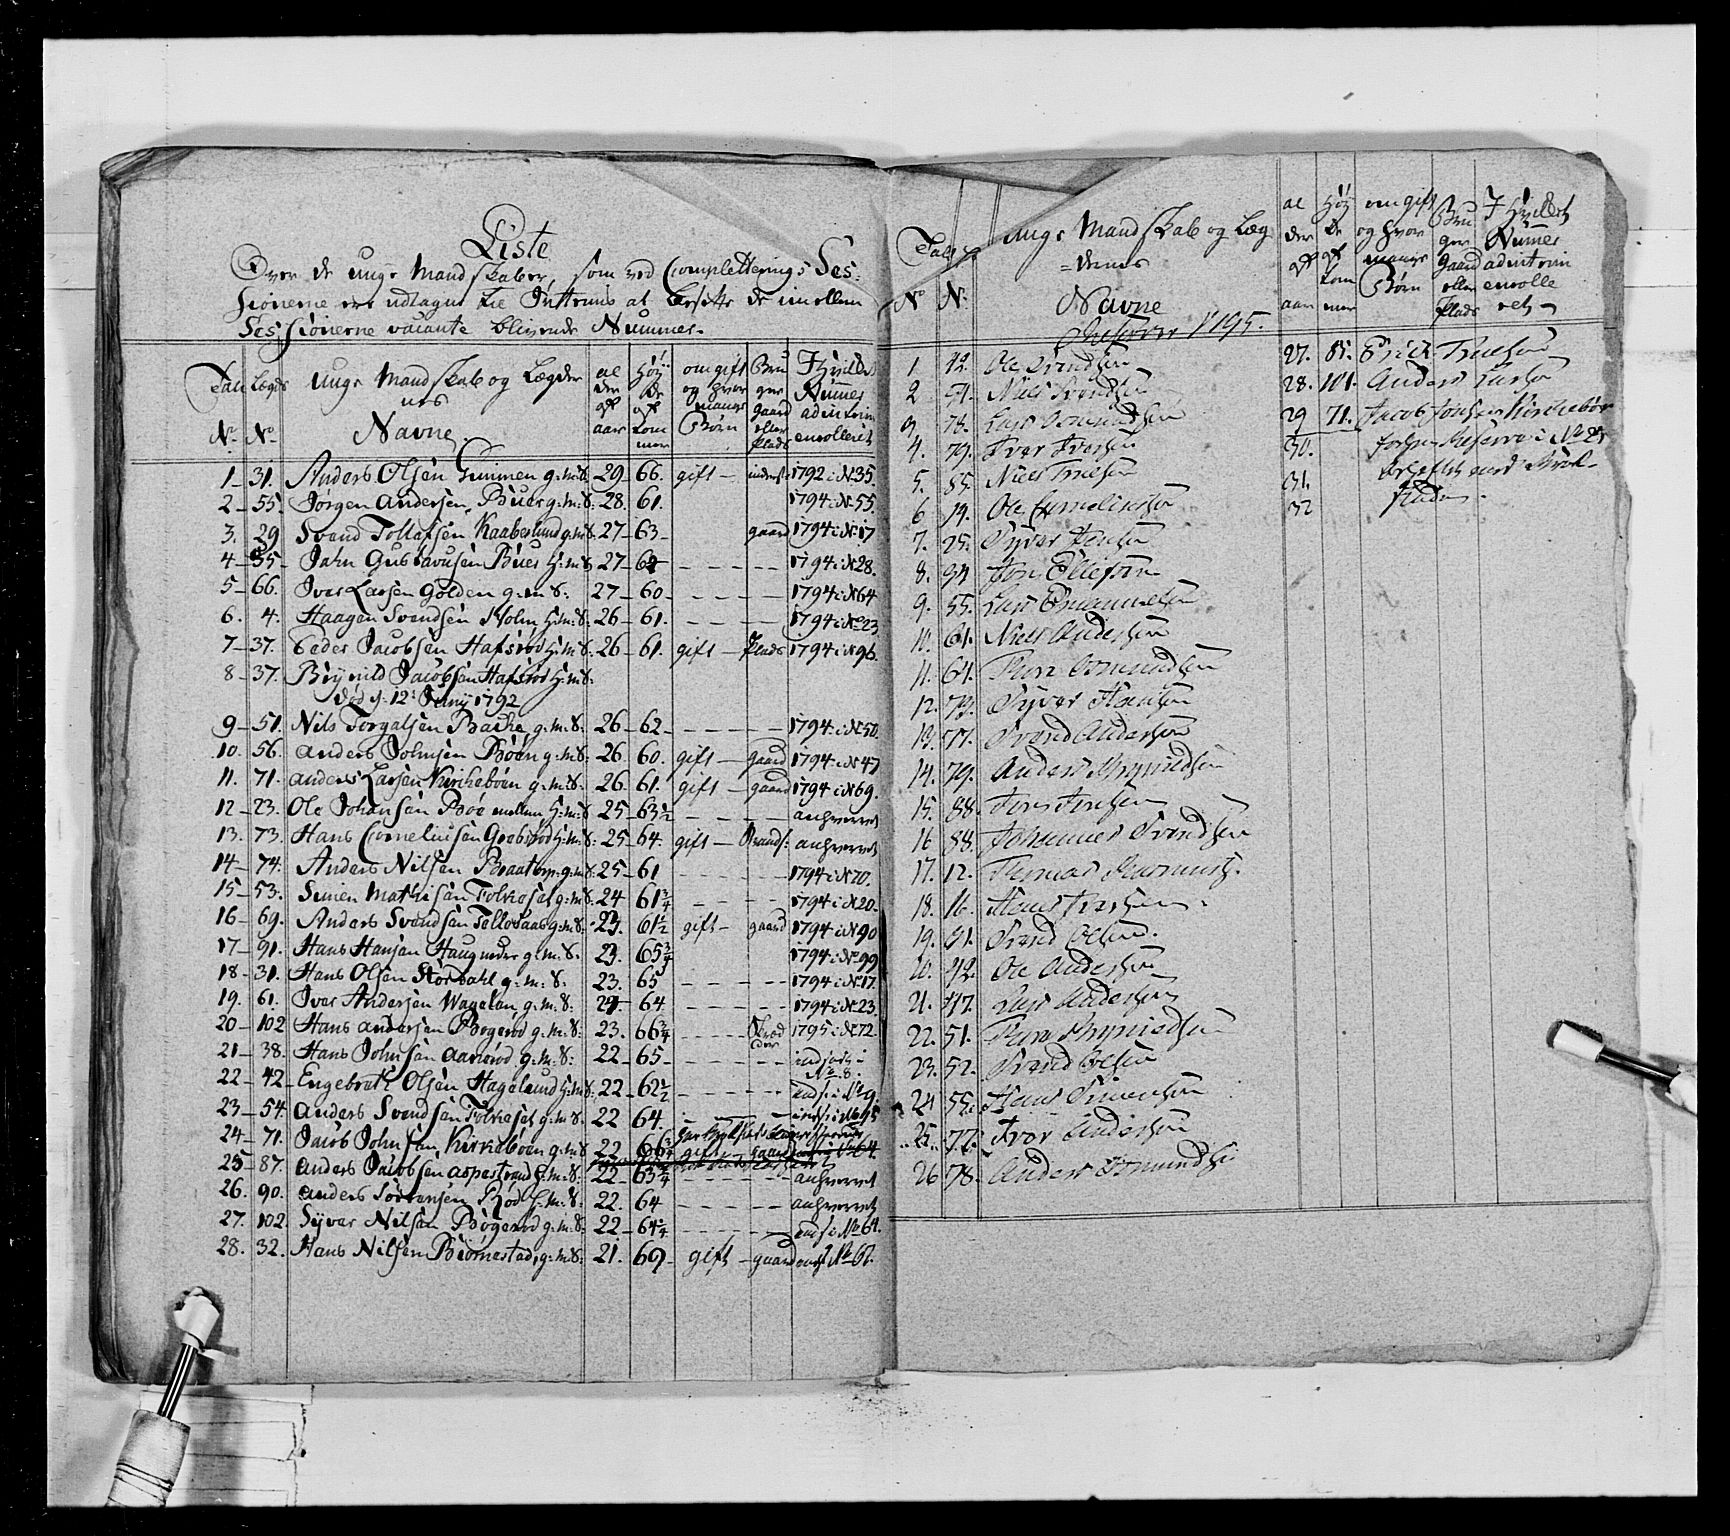 Liste
Over de unge Mandskaber, som ved Completterings Ses:
sionerne ere udtagne til Interims at besette de imellem
Sessionerne vacante blivende Nummer.
Tall No. Lægds No. unge Mandskab og Lægder nes Navne. al der af aar Høy De af tom mer om gift og hvor mange Børn Bru ger gaard eller Plads I Hvilket Nummer ad interim enrolleret
1 31. Anders Olsen Gunnen g:m:S. 29 66. gift 1792 i No 35.
2 55. Jørgen Andersen Buer g:m:S. 28 61. 1794 i No 55.
3. 29 Svend Tollafsen Kaaberlund g:m:S. 27 63 gaard 1794 i No 17
4 55 John Gustavusen Buer H:m:S. 27 62 1794 i No 28.
5 66. Iver Larsen Golden g:m:S. 27 60 1794 i No 64
6. 4. Haagen Svendsen Holm H:m:S. 26 61. 1794 i No 23
7 37. Peder Jacobsen Hafsrød H:m:S. 26 61. gift Plads 1794 i No 96.
8 37. Brynild Jacobsen Hafsrød H:m:S.
død d. 12 Juny 1792
9 51. Nils Torgalsen Bache g:m:S. 26 62 1794 i No 50.
10. 56. Anders Johnsen Bøen g:m:S. 26 60. gift gaard 1794 i No 47
11. 71. Anders Larsen Kirkebøen g:m:S. 26 61. gift gaard 1794 i No 69.
12 23. Ole Johansen Bøe mellem H:m:S. 25 63½ anhvervet
13. 73. Hans Corneliusen H:m:S. 25 64. gift Strands: anhvervet
14 74. Anders Nilsen g:m:S. 25 61 1794 i No 70.
15 53. Simen Mathisen Folkesal g:m:S. 24 61¾ 1794 i No 20.
16 69. Anders Svendsen g:m:S. 23. 61½ gift gaard 1794 i No 90
17 91. Hans Hansen Haug nedre g:m:S. 23. 65¾ 1794 i No 99
18 31. Hans Olsen Stordahl g:m:S. 23. 65 1794 i No 17.
19. 61. Iver Andersen Wagelen g:m:S. 64 1794 i No 23.
20 102 Hans Andersen Bøgerød g:m:S. 23. 66¾ Skræd der 1795 i No 72.
21 38. Hans Johnsen Aanerød g:m:S. 22 65 indsat i No 8.
22 42 Engebreth Olsen Hagelund H:m:S. 22 62½ inds: i No 9.
23 54. Anders Svendsen Folkesal g:m:S. 22 64. inds: i No 15
24 71. Jacob Johnsen Kirkebøen g:m:S 22 66¾ gift gaard
25 87. Anders Jacobsen Aspestrand H:m:S. 22 63¼ anhvervet
26. 90. Anders Sørrensen Rød H:m:S. 22. 64 anhvervet
27. 102. Syver Nilsen Bøgerød g:m:S. 22 64¼ inds: i No 64.
28. 32. Hans Nilsen Biørnestad, g:m:S. 21. 69 gift gaard No 67.
Tall No unge Mandskab og Læg
=dernes
No: Navne
Reserver 1795.
al der af aar Høy De af tom mer om gift og hvor mange Børn Bru ger gaard eller Plads I Hvilket Nummer ad interim enrolle ret
1 42. Ole Svendsen
2 54. Niels Svendsen
3 78. Lars Osmundsen
4. 79. Iver Iversen
5. 85. Niels Truelsen
6 19. Ole Corneliussen
7. 25. Syver Jensen
8. 34 Jon Ellefsen
9. 55. Lars Emanuelsen
10. 61. Niels Andersen
11. 64. Osmundsen
12. 73. Syver Hansen
13. 77. Svend Andersen
14. 79. Anders Brynildsen
15. 88. Jens Jensen
16 88. Johannes Svendsen
17. 12. Thomas Rasmuss:
18. 16. Hans Iversen
19. 91. Svend Olsen.
20. 42. Ole Andersen
21. 47. Lars Andersen
22. 51. Brynildsen
23. 52. Svend Olsen
24 55. Hans Simensen
25. 77. Iver Andersen
26 78. Anders Osmundsen
27. 81. Erick Truelsen
28. 101. Anders Larsen
29 71. Jacob Jonsen Kirkebøe
30. Reserve i No 25
31.
32